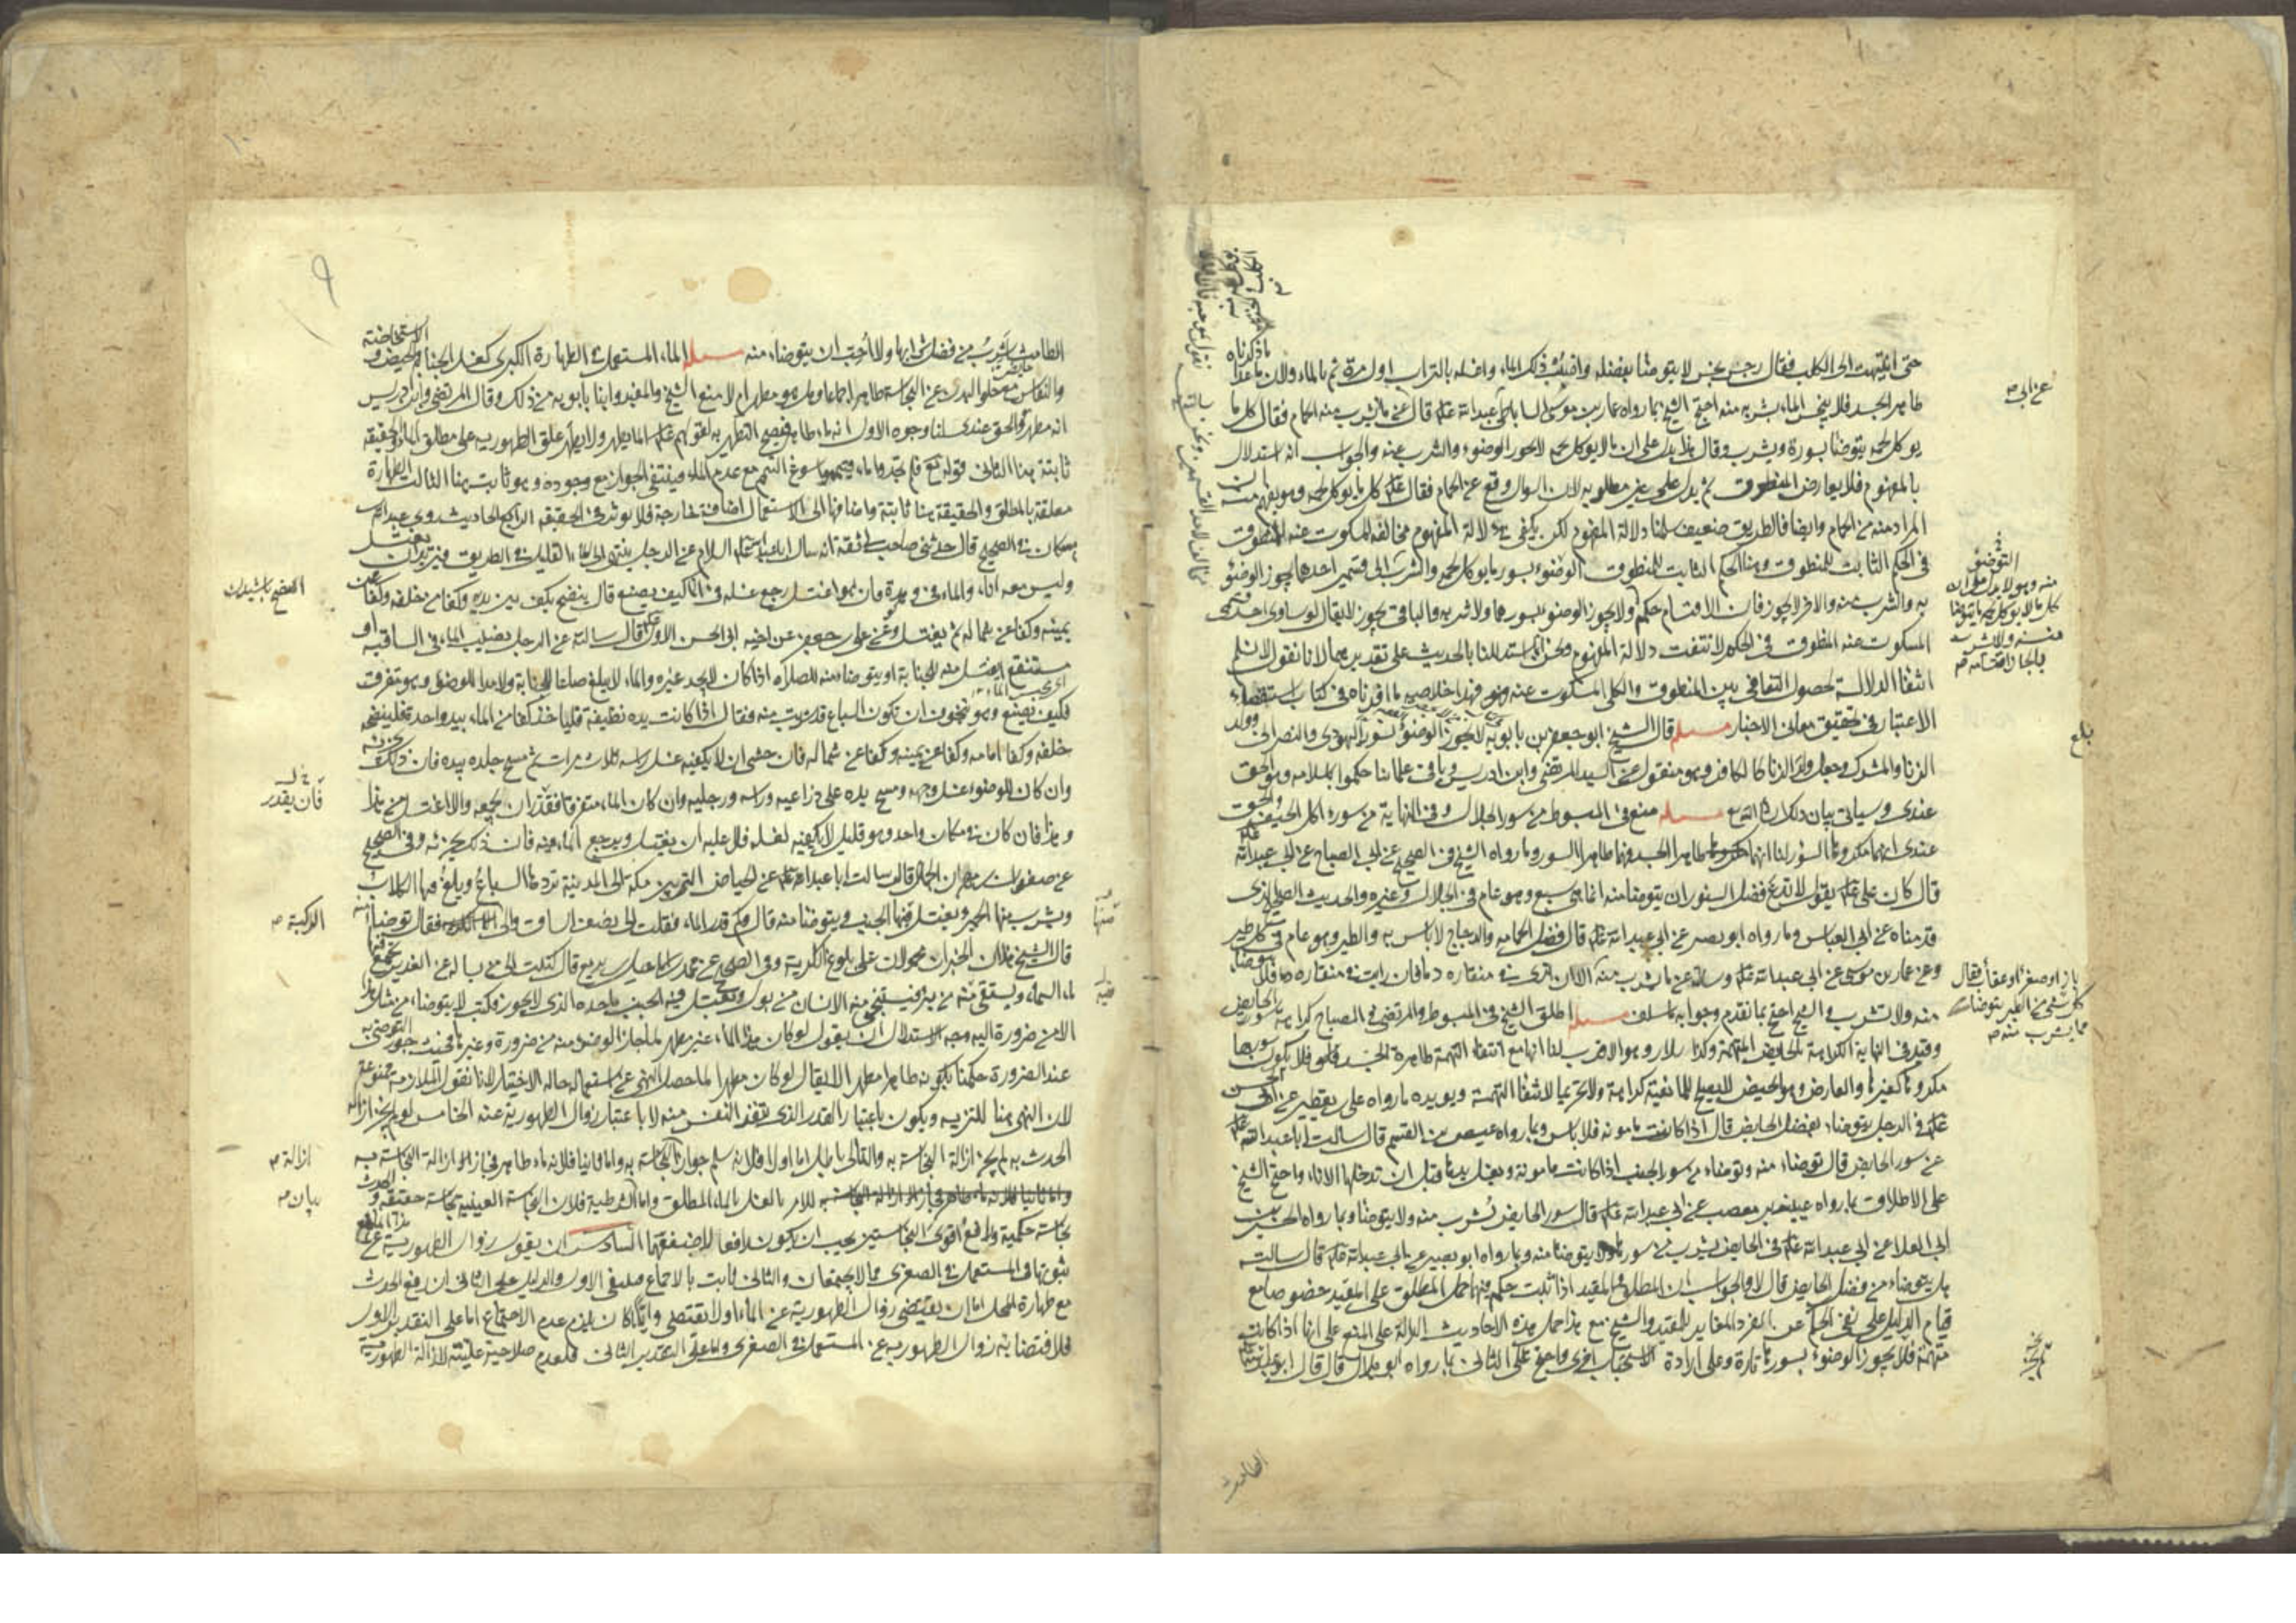 حتى انتهيت الى الكلب فقال رجس نجس لا يتوضأ بفضله واصبب ذلك الماء واغسله بالتراب اول مرة ثم بالماء ولان ما عدا
ما ذكرناه
طاهر الجسد فلا ينجس الماء بشربه منه احتج الشيخ بما رواه عمار بن موسى الساباطي عبد الله قال سئل عن ما يشرب منه الحمام فقال كل ما
عن ابي
يوكل لحمه يتوضأ بسوره ويشرب وقال هذا يدل على ان ما لا يوكل لحمه لا يجوز الوضوء والشرب منه والجواب انه استدلال
بالمفهوم فلا يعارض المنطوق ثم يدل على غير مطلوبه لان السوال وقع عن الحمام فقال كل ما يوكل لحمه وهو يفهم منه ان
المراد منه من الحمام وايضا فالطريق ضعيف سلمنا دلالة المفهوم لكن يكفي في دلالة المفهوم مخالفة المسكوت عنه للمنطوق
في الحكم الثابت للمنطوق وهنا الحكم الثابت للمنطوق الوضوء بسور ما يوكل لحمه والشرب
به والشرب منه والاخر لا يجوز فان الاقسام حكم ولا يجوز الوضوء بسورها ولا شربه والباقي يجوز لا يقال لو ساوى احد قسمي
المسكوت عنه المنطوق في الحكم لانتفت دلالة المفهوم ونحن استدللنا بالحديث على تقديرها لانا نقول لا نسلم
انتفاء الدلالة لحصول التنافي بين المنطوق والكل المسكوت عنه فهذا خلاصة ما افدناه في كتاب استقصاء
الاعتبار في تحقيق معاني الاخبار مسئلة قال الشيخ ابو جعفر بن بابويه لا يجوز الوضوء بسور اليهودي والنصراني وولد
الزنا والمشرك وجعل ولد الزنا كالكافر وهو منقول عن السيد المرتضى وابن ادريس وباقي علمائنا حكموا باسلامه وهو الحق
عندي وسياتي بيان ذلك ان شاء الله تع مسئلة منع في المبسوط من سور الجلال وفي النهاية من سور اكل الجيف والحق
عندي انهما مكروها السور لنا انهما طاهرا الجسد فهما طاهرا السور وما رواه الشيخ في الصحيح عن ابي الصباح عن ابي عبد الله
قال كان علي يقول لا تدع فضل السنور ان يتوضأ منه انما هي سبع وهو عام في الجلال وغيره والحديث الصحيح الذي
قدمناه عن ابي العباس وما رواه ابو بصير عن ابي عبد الله قال فضل الحمامة والدجاج لا باس به والطير وهو عام في كل طير
وعن عمار بن موسى عن ابي عبد الله وسئل عن ما يشرب منه
باز او صقر او عقاب فقال
كل شيء من الطير يتوضأ
مما يشرب منه
الا ان ترى في منقاره دما فان رايت في منقاره دما فلا تتوضأ
منه ولا تشرب والشيخ احتج بما تقدم وجوابه ما سلف مسئلة اطلق الشيخ في المبسوط والمرتضى في المصباح كراهية سور الحايض
وقيد في النهاية الكراهة للحايض المتهمة وكذا سلار وهو الاقرب لنا انها مع انتفاء التهمة طاهرة الجسد فلا يكون سورها
مكروها كغيرها والعارض وهو الحيض لا يصلح للمانعية كراهة ولا تحريما لانتفاء التهمة ويويده ما رواه علي بن يقطين عن ابي الحسن
في الرجل يتوضاء بفضل الحايض قال اذا كانت مامونة فلا باس وما رواه عيص بن القسم قال سالت ابا عبد الله
عن سور الحايض قال توضاء منه وتوضاء من سور الجنب اذا كانت مامونة وتغسل يدها قبل ان تدخلها الاناء واحتج الشيخ
على الاطلاق بما رواه عنبسة بن مصعب عن ابي عبد الله قال سور الحايض تشرب منه ولا يتوضأ وما رواه الحسين بن
ابي العلا عن ابي عبد الله في الحايض يشرب من سورها ولا يتوضأ منه وما رواه ابو بصير عن ابي عبد الله قال سالت
هل يتوضاء من فضل الحايض قال لا والجواب ان المطلق والمقيد اذا ثبت حكم فيهما حمل المطلق على المقيد خصوصا مع
قيام الدليل على نفي الحكم عن الفرد المغاير للمقيد والشيخ مع هذا حمل هذه الاحاديث الدالة على المنع على انها اذا كانت
متهمة فلا يجوز الوضوء بسورها تارة وعلى ارادة الاستحباب اخرى واحتج على الثاني بما رواه ابو هلال قال قال ابو عبد الله
بلغ
الطامث
٩
الطامث اشرب من فضل شرابها ولا احب ان يتوضاء منه مسئلة الماء المستعمل في الطهارة الكبرى كغسل الجنابة والحيض والاستحاضة
والنفاس مع خلو البدن عن النجاسة طاهر اجماعا وهل هو مطهر ام لا منع الشيخ والمفيد وابنا بابويه من ذلك وقال المرتضى وابن ادريس
انه مطهر والحق عندي لنا وجوه الاول انه ماء طاهر فيصح التطهير به لقولهم الماء يطهر ولا يطهر علق الطهورية على مطلق الماء والحقيقة
ثابتة هنا الثاني قوله تع فلم تجدوا ماء فتيمموا سوغ التيمم مع عدم الماء فينتفي الجواز مع وجوده وهو ثابت هنا الثالث الطهارة
معلقة بالمطلق والحقيقة هنا ثابتة واضافتها الى الاستعمال اضافة خارجة فلا يوثر في الحقيقة الرابع الحاديث روى عبد الله
بن مسكان في الصحيح قال حدثني صاحب لي ثقة انه سال ابا عبد الله عليه السلام عن الرجل ينتهي الى الماء القليل في الطريق فيريد ان يغتسل
وليس معه اناء والماء في وهدة فان هو اغتسل رجع غسله في الماء كيف يصنع قال ينضح بكف بين يديه وكفا من خلفه وكفا عن
يمينه وكفا عن شماله ثم يغتسل وعن علي بن جعفر عن اخيه ابي الحسن الاول قال سالته عن الرجل يصيب الماء في الساقية او
مستنقع ايغتسل منه للجنابة او يتوضا منه للصلاة اذا كان لا يجد غيره والماء لا يبلغ صاعا للجنابة ولا مدا للوضوء وهو متفرق
فكيف يصنع وهو يتخوف ان تكون السباع قد شربت منه فقال اذا كانت يده نظيفة فلياخذ كفا من الماء بيد واحدة فلينضحه
خلفه وكفا امامه وكفا عن يمينه وكفا عن شماله فان خشي ان لا يكفيه غسل راسه ثلاث مرات ثم مسح جلده بيده فان ذلك يجزئه
وان كان للوضوء غسل وجهه ومسح يده على ذراعيه وراسه ورجليه وان كان الماء متفرقا فقدر ان يجمعه والا اغتسل من هذا
فان يقدر
وهذا فان كان في مكان واحد وهو قليل لا يكفيه لغسله فلا عليه ان يغتسل ويرجع الماء فيه فان ذلك يجزئه وفي الصحيح
عن صفوان بن مهران الجمال قال سالت ابا عبد الله عن الحياض التي بين مكة الى المدينة تردها السباع ويلغ فيها الكلاب
ويشرب منها الحمير ويغتسل فيها الجنب ويتوضأ منه قال وكم قدر الماء فقلت الى نصف الساق والى
الركبة
فقال توضأ منه
قال الشيخ هذان الخبران محمولان على بلوغ الكرية وفي الصحيح عن محمد بن اسماعيل بن بزيع قال كتبت الى من يساله عن الغدير يجتمع فيه
ماء السماء ويستقى منه من بئر فيستنجي منه الانسان من بول ويغتسل فيه الجنب ما حده الذي لا يجوز فكتب لا يتوضاء من مثل هذا
الا من ضرورة اليه وجه الاستدلال ان يقول لو كان هذا الماء غير مطهر لما جاز الوضوء منه من ضرورة وغيرها وحيث جوز التوضئ به
عند الضرورة حكمنا بكونه طاهرا مطهرا لا يقال لو كان مطهرا لما حصل النهي عن استعماله حالة الاختيار لانا نقول الملازمة ممنوعة
لان النهي هنا للتنزيه ويكون باعتبار القدر الذي تنفر النفس منه لا باعتبار زوال الطهورية عنه الخامس لو لم يجز ازالة
الحدث به لم يجز ازالة النجاسة به والتالي باطل اما اولا فلانه سلم جواز ازالة النجاسة به واما ثانيا فلانه ماء طاهر فجاز ازالة النجاسة به
للامر بالغسل بالماء المطلق واما الشرطية فلان النجاسة العينية نجاسة حقيقة والحدث
بيان
نجاسة حكمية ورافع اقوى النجاستين يجب ان يكون رافعا لاضعفهما السادس ان يقول زوال الطهورية عن هذا الماء مع
ثبوتها في المستعمل في الصغرى مما لا يجتمعان والثاني ثابت بالاجماع فينتفي الاول والدليل على الثاني ان رفع الحدث
مع طهارة المحل اما ان يقتضي زوال الطهورية عن الماء او لا يقتضي وايا ما كان يلزم عدم الاجتماع اما على التقدير الاول
فلاقتضائه زوال الطهورية عن المستعمل في الصغرى واما على التقدير الثاني فلعدم صلاحية علينه لازالة الطهورية